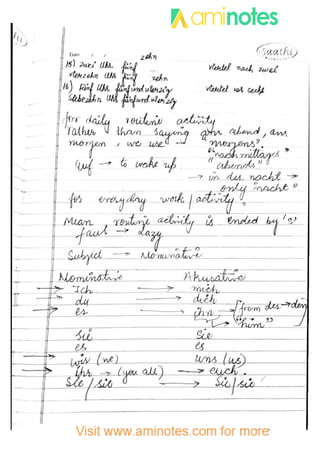 aminotes
Saathi
Date / /
zehn
15) zwei Uhr fünf
Viertel nach zwei
Vierzehn Uhr fünfzehn
16) Fünf Uhr fünfundvierzig
Viertel vor sechs
Siebzehn Uhr fünfundvierzig
for daily routine activity
rather than saying am abend, am
morgen, we use "morgens"
"nachmittags"
auf → to wake up "abends"
→ in der nacht →
only "nachts"
for everyday work / activity
Mean routine activity is ended by 's'
faul → lazy
Subject → Nominative
Nominative Akusative
Ich → mich
du → dich
er → ihn → from der → den
"him"
Sie Sie
es es
wir (we) uns (us)
Ihr → (you all) → euch.
Sie / sie → Sie / sie
Visit www.aminotes.com for more